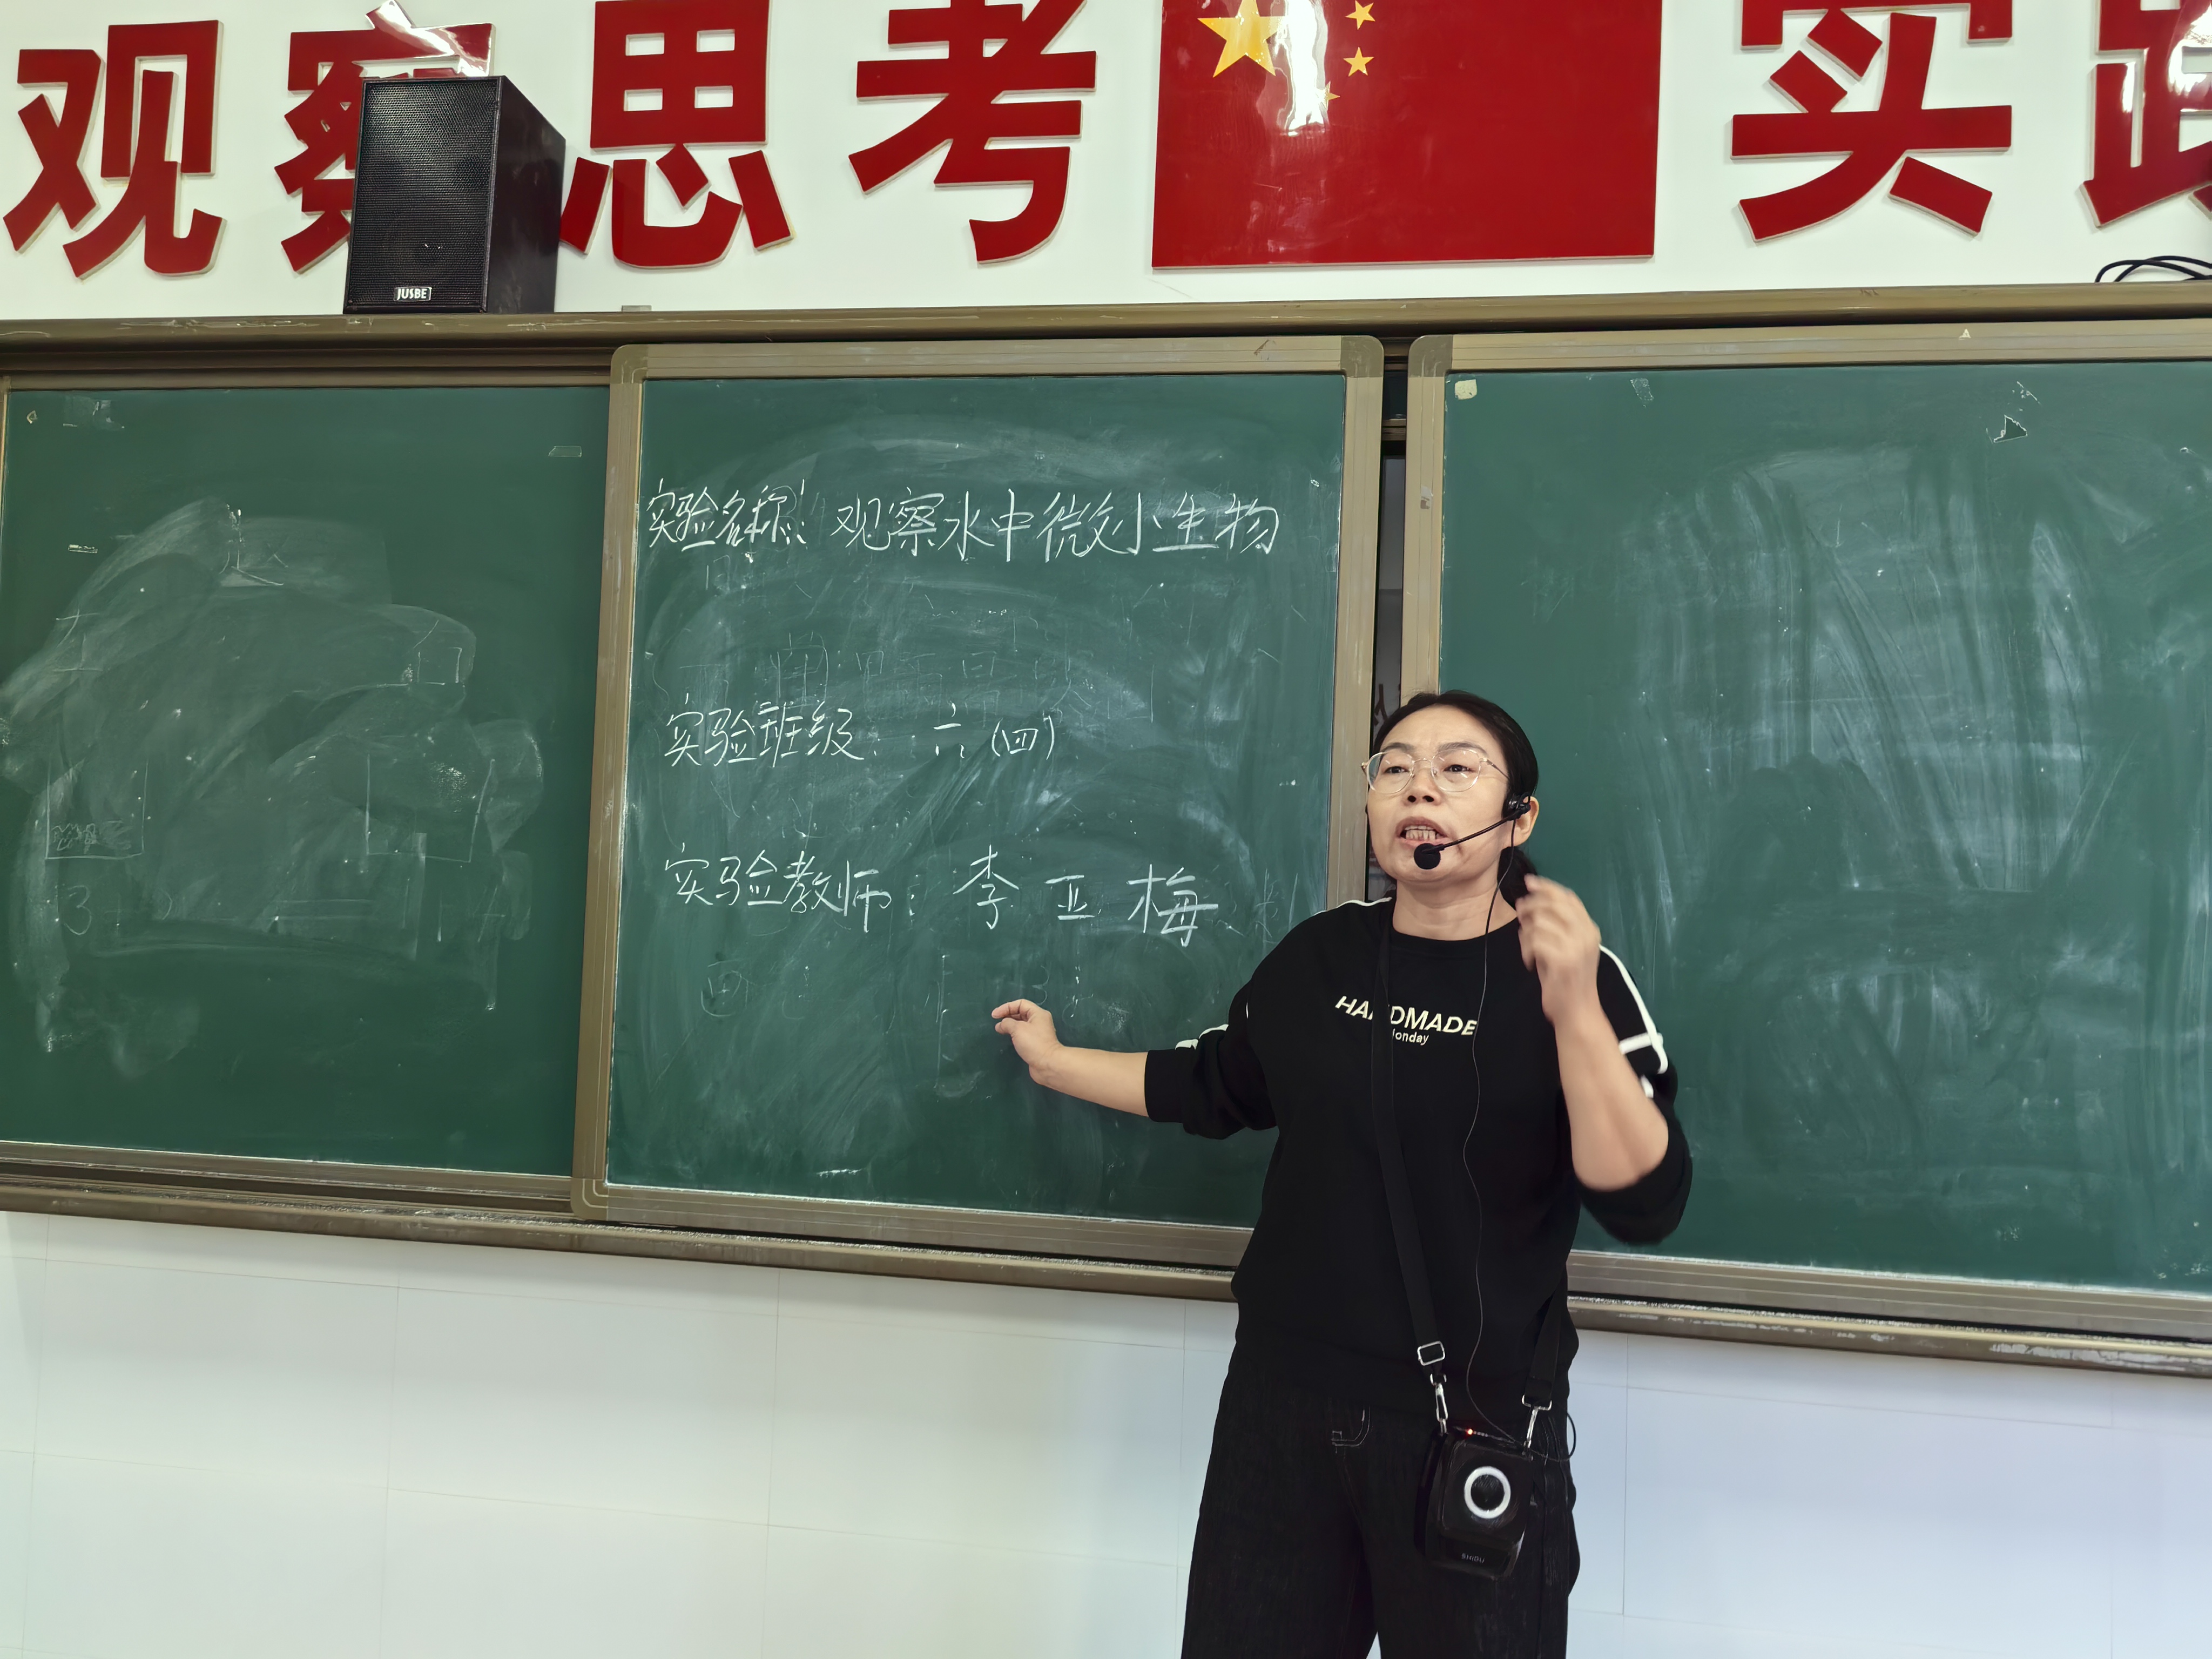 观察思考 实践
JUSBE
实验名称: 观察水中微小生物
实验班级: 六(四)
实验教师: 李亚梅
HANDMADE
Monday
SHIDU